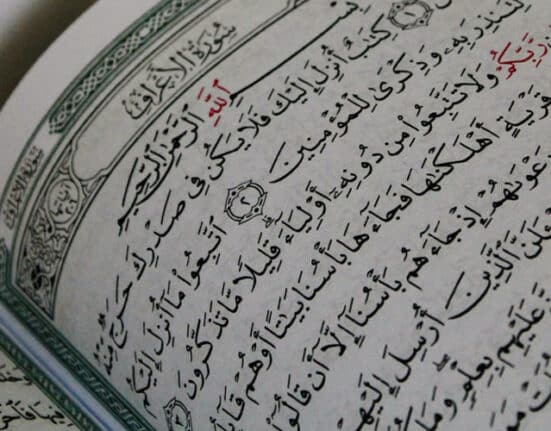 سُورَةُ الْأَعْرَافِ
سُورَةُ الْأَعْرَافِ
اللَّهِ الرَّحْمَٰنِ الرَّحِيمِ
١ كِتَٰبٌ أُنزِلَ إِلَيْكَ فَلَا يَكُن فِي صَدْرِكَ حَرَجٌ مِّنْهُ
لِتُنذِرَ بِهِۦ وَذِكْرَىٰ لِلْمُؤْمِنِينَ ٢ ٱتَّبِعُوا۟ مَآ أُنزِلَ إِلَيْكُم
رَّبِّكُمْ وَلَا تَتَّبِعُوا۟ مِن دُونِهِۦٓ أَوْلِيَآءَ قَلِيلًا مَّا تَذَكَّرُونَ ٣
قَرْيَةٍ أَهْلَكْنَٰهَا فَجَآءَهَا بَأْسُنَا بَيَٰتًا أَوْ هُمْ قَآ
دَعْوَىٰهُمْ إِذْ جَآءَهُم بَأْسُنَآ إِلَّآ أَن قَالُوٓا۟
ٱلَّذِينَ أُرْسِلَ إِلَيْهِمْ
عَلَيْهِم بِعِلْمٍ وَمَا